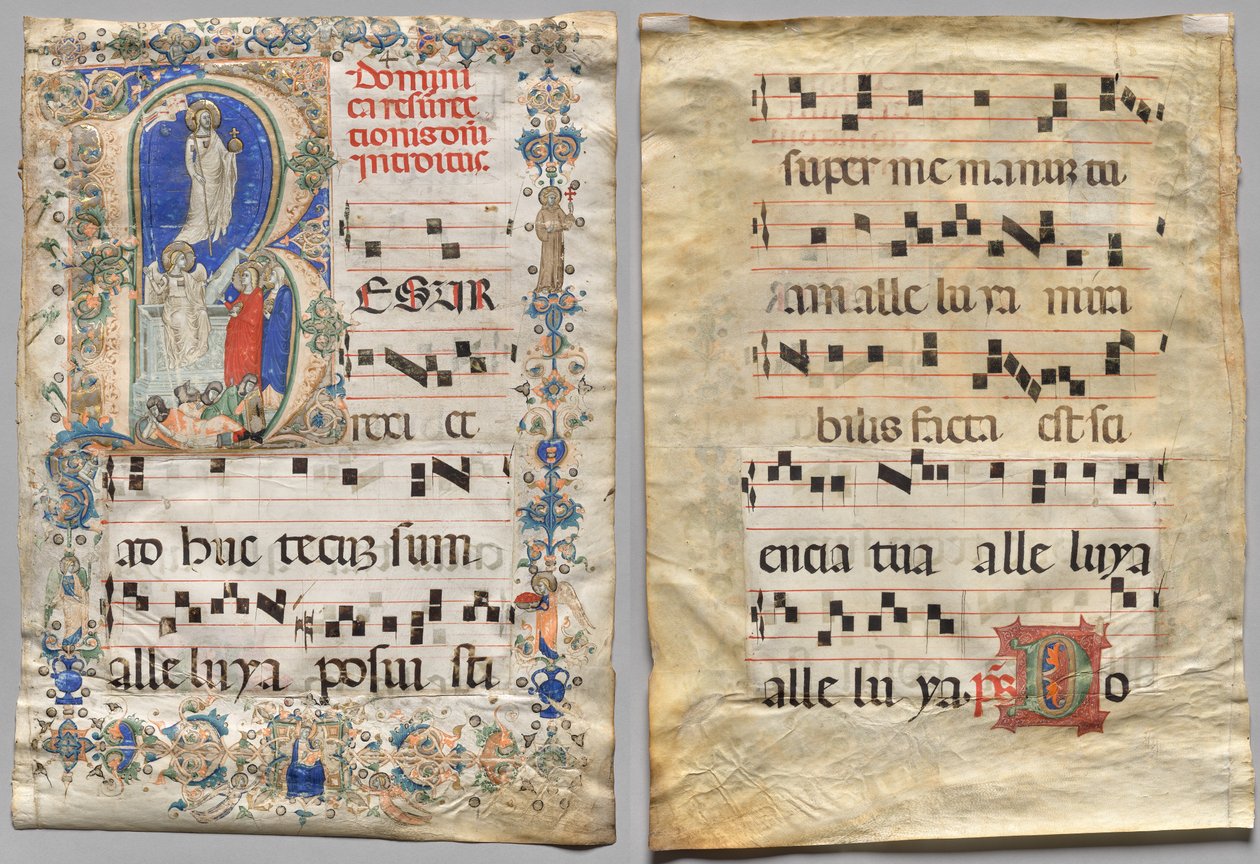 Domini
ca resurec
tionis dñi
Introitus.
R ESVR
rexi et
ad huc tecuʒ sum
alleluya posui sti
super me manuʒ tu
am alle lu ya mira
bilis facta est sci
encia tua alle luya
alle lu ya. ps̄ Do